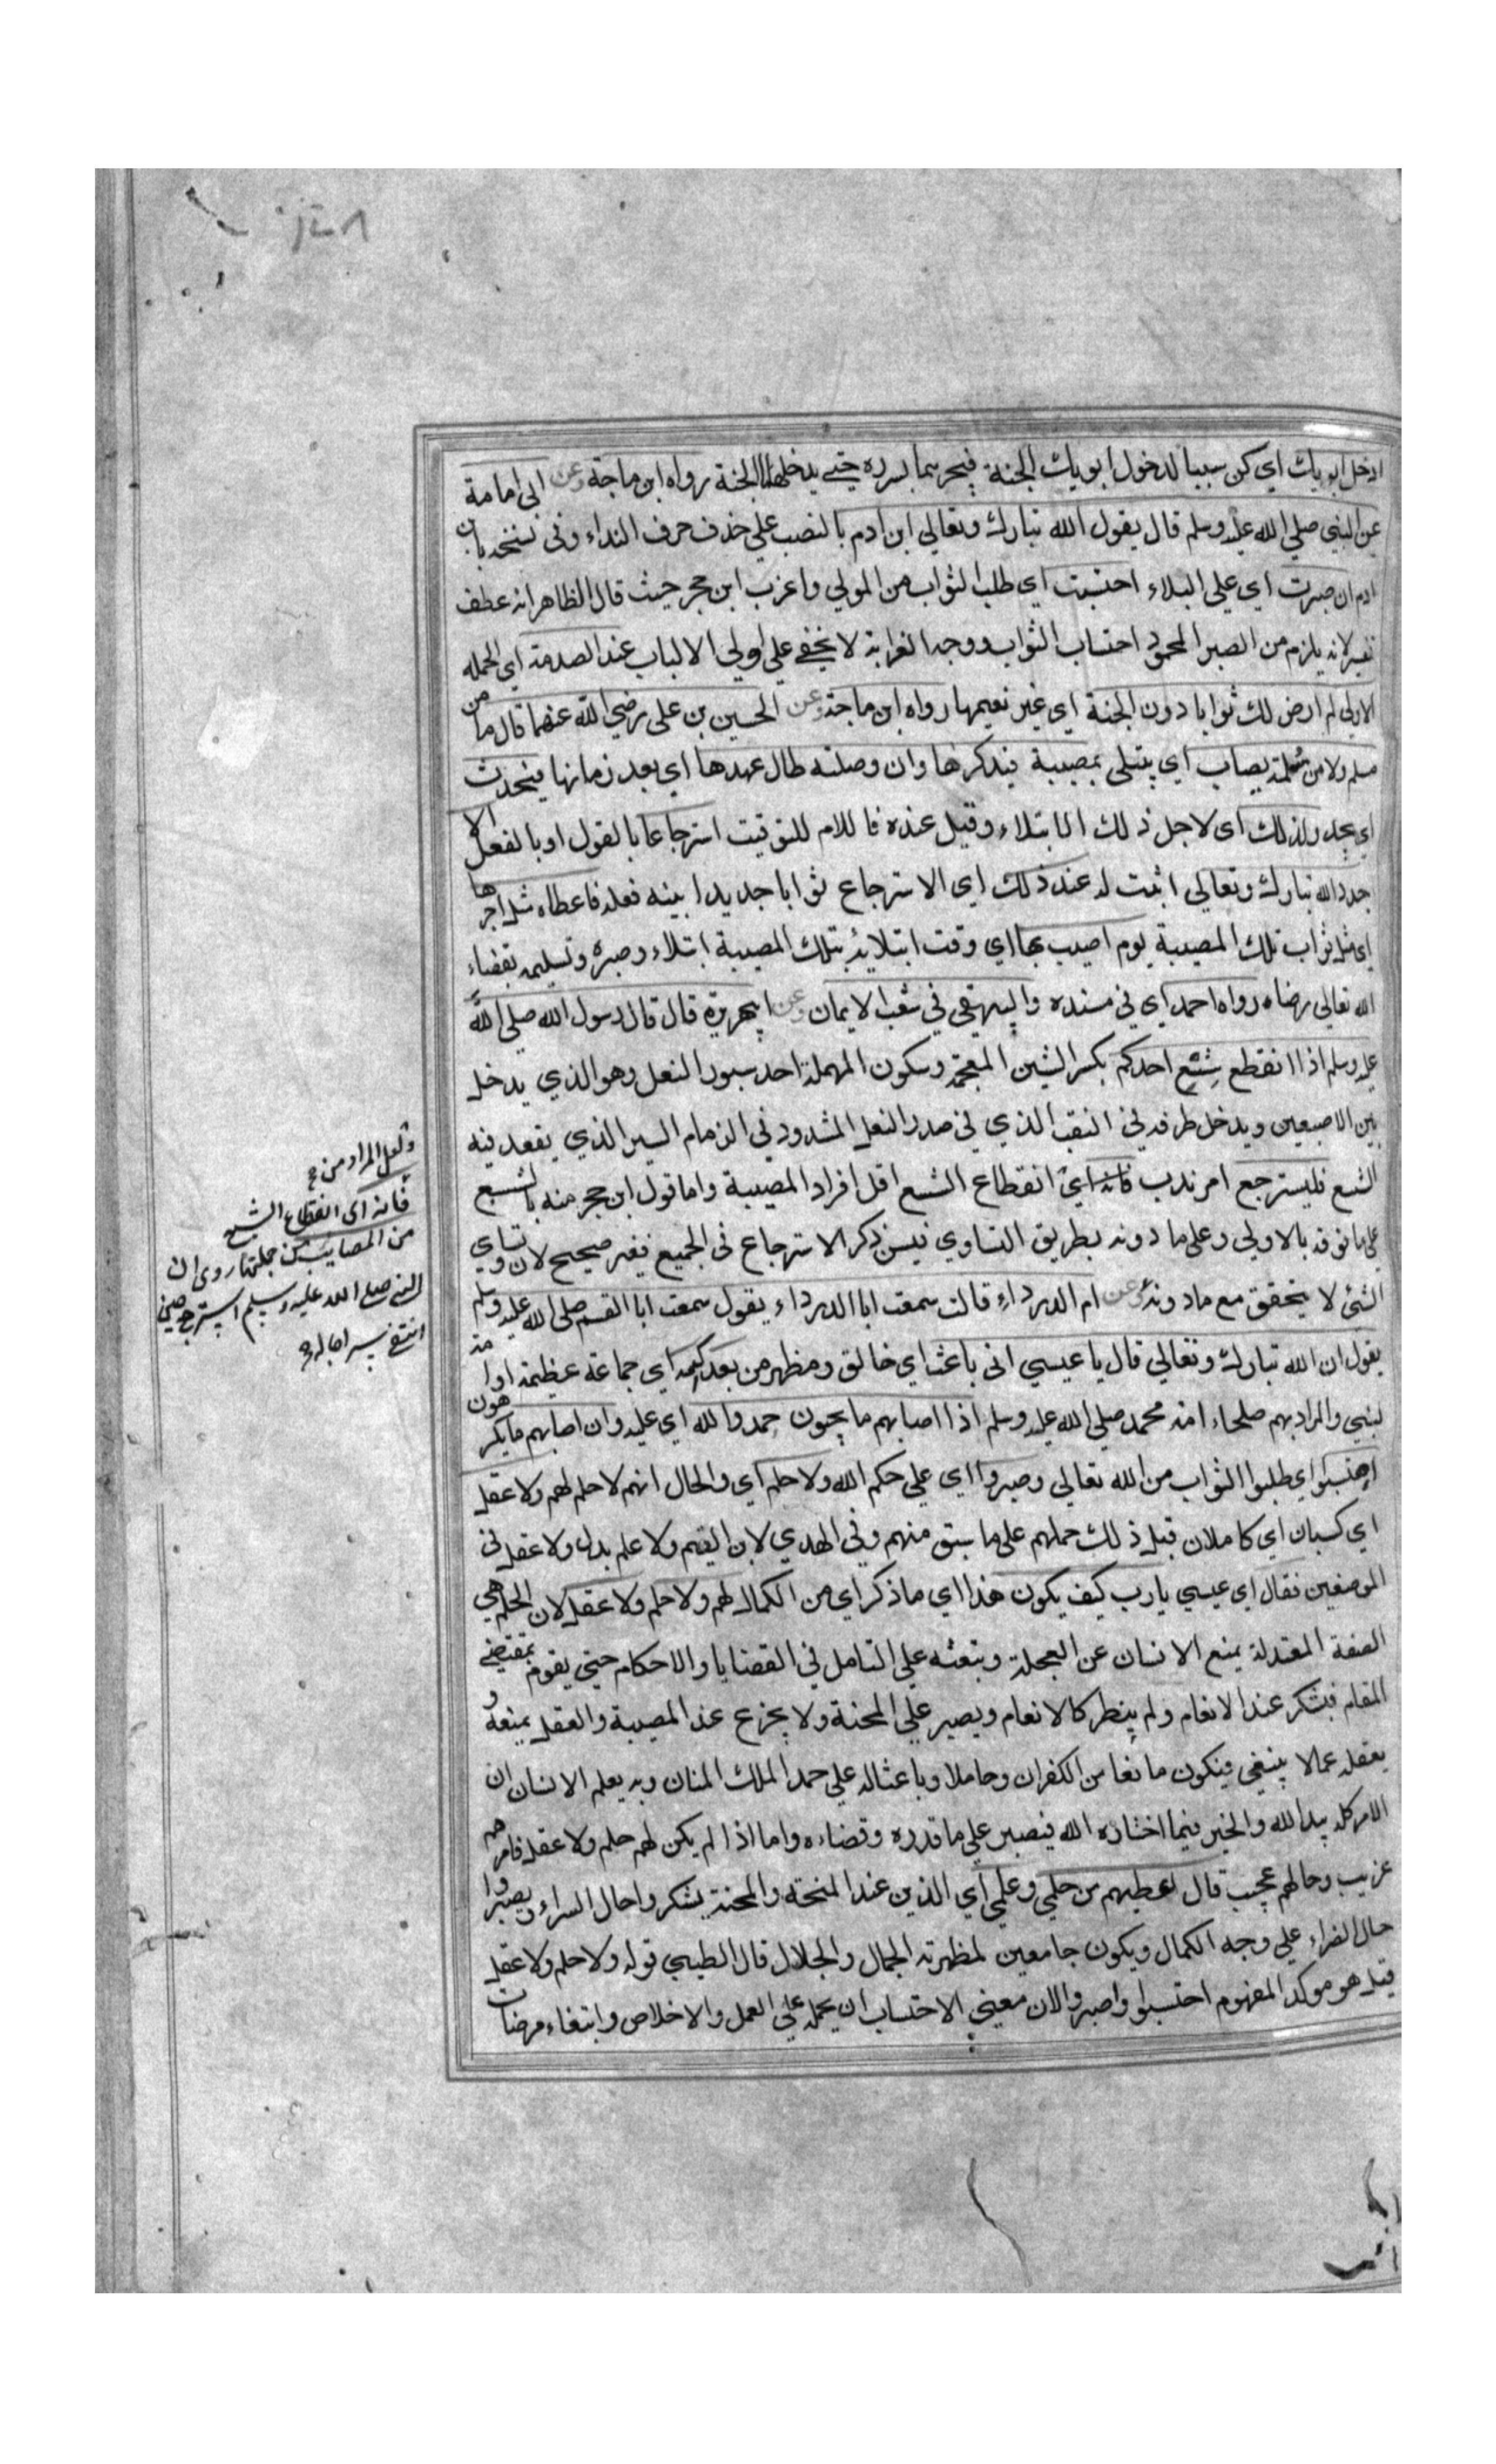 ادخل ابويك اي كن سببا لدخول ابويك الجنة فيجرهما بسرره حتى يدخلهما الجنة رواه ابن ماجة وعن ابى امامة
عن النبي صلي الله عليه وسلم قال يقول الله تبارك وتعالي ابن ادم بالنصب علي حذف حرف النداء وفى نسخه يا ابن
ادم ان صبرت اي علي البلاء احتسبت اي طلب الثواب من المولي واغرب ابن حجر حيث قال الظاهر انه عطف
تفسير لانه يلزم من الصبر المحمود احتساب الثواب ووجه الغرابة لا يخفي علي اولي الالباب عند الصدمة اي الحمله
الاولى لم ارض لك ثوابا دون الجنة اي غير نعيمها رواه ابن ماجة وعن الحسين بن على رضي الله عنهما قال ما من
مسلم ولا مسلمة يصاب اي يبتلى بمصيبة فيذكرها وان وصلته طال عهدها اي بعد زمانها فيحدث
اي يجدد لذلك اى لاجل ذلك الابتلاء وقيل عنده فاللام للتوقيت استرجاعا بالقول او بالفعل الا
جدد الله تبارك وتعالي اثبت له عند ذلك اي الاسترجاع ثوابا جديدا بينه فعله فاعطاه مثل اجرها
اى مثل ثواب تلك المصيبة يوم اصيب بها اي وقت ابتلايه بتلك المصيبة ابتلاء وصبره وتسليمه بقضاء
الله تعالى رضاه رواه احمد اي في مسنده والبيهقي في شعب الايمان وعن ابيهريرة قال قال رسول الله صلى الله
عليه وسلم اذا انقطع شسع احدكم بكسر الشين المعجمة وسكون المهملة احد سيور النعل وهو الذي يدخل
بين الاصبعين ويدخل طرفه في النقب الذي في صدر النعل المشدود في الزمام السير الذي يعقد فيه
الشسع فليسترجع امر ندب فانه اي انقطاع الشسع اقل افراد المصيبة واما قول ابن حجر منه بالشسع
على ما فوقه بالاولي وعلي ما دونه بطريق التساوي فيسن ذكر الاسترجاع في الجميع فغير صحيح لان تساوي
الشئ لا يتحقق مع ما دونه وعن ام الدرداء قالت سمعت ابا الدرداء يقول سمعت ابا القسم صلى الله عليه وسلم
يقول ان الله تبارك وتعالي قال يا عيسي انى باعث اي خالق ومظهر من بعدك امة اي جماعة عظيمة او امة
لنبي والمراد بهم صلحاء امة محمد صلي الله عليه وسلم اذا اصابهم ما يحبون حمدوا الله اي عليه وان اصابهم ما يكرهون
احتسبوا اي طلبوا الثواب من الله تعالى وصبروا اي علي حكم الله ولا حلم اي والحال انهم لا حلم لهم ولا عقل
اي كسبان اي كاملان قبل ذلك حملهم على ما سبق منهم وفى الهدي لابن القيم ولا علم بدل ولا عقل فى
الموضعين فقال اي عيسي يا رب كيف يكون هذا اي ما ذكر اي من الكمال لهم ولا حلم ولا عقل لان الحلم هي
الصفة المعتدلة يمنع الانسان عن العجلة وتبعثه علي التامل في القضايا والاحكام حتي يقوم بمقتضي
المقام فيشكر عند الانعام ولم ينظر كالانعام ويصبر علي المحنة ولا يجزع عند المصيبة والعقل يمنعه و
يعقله عما لا ينبغى فيكون مانعا من الكفران وحاملا وباعثا له علي حمد الملك المنان وبه يعلم الانسان ان
الامر كله بيد الله والخير فيما اختاره الله فيصبر علي ما قدره وقضاه واما اذا لم يكن لهم حلم ولا عقل فامرهم
غريب وحالهم عجيب قال اعطيهم من حلمي وعلمي اي الذين عند المنحة والمحنة يشكروا حال السراء ويصبروا
حال الضراء علي وجه الكمال ويكون جامعين لمظهرته الجمال والجلال قال الطيبي قوله ولا حلم ولا عقل
قيل هو موكد المفهوم احتسبوا واصبروا لان معني الاحتساب ان يحمله على العمل والاخلاص وابتغاء مرضات
ولعل المراد من
فانه اى انقطاع الشسع
من المصايب من جملتها روى ان
النبى صلى الله عليه وسلم استرجع حين